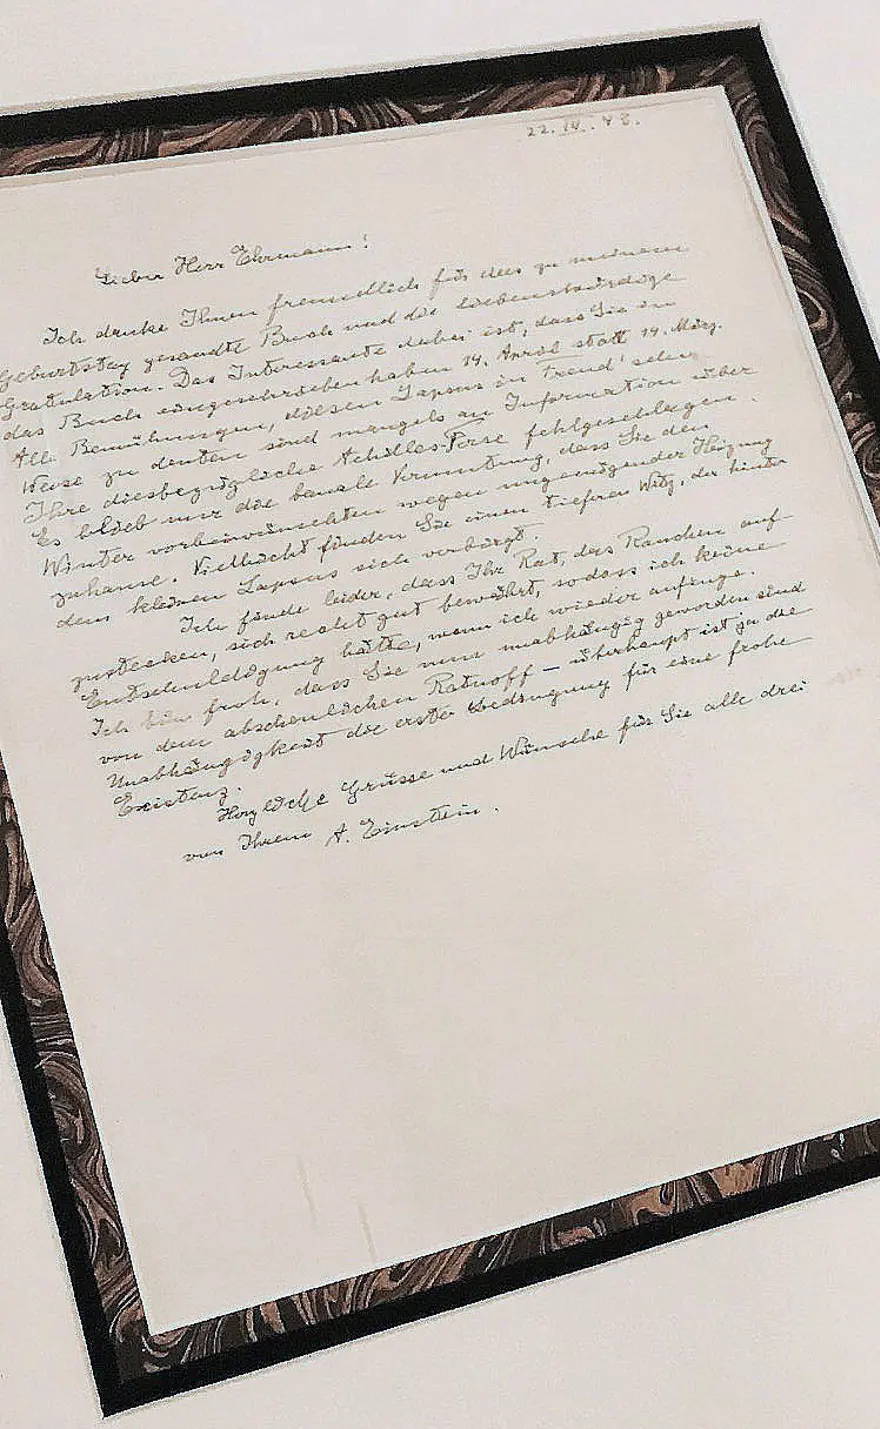 22. IV. 43.
Lieber Herr Ehrmann!
Ich danke Ihnen freundlich für das zu meinem
Geburtstag gesandte Buch und die liebenswürdige
Gratulation. Das Interessante dabei ist, dass Sie in
das Buch eingeschrieben haben 14. April statt 14. März.
Alle Bemühungen, diesen Lapsus in Freud'scher
Weise zu deuten sind mangels an Information über
Ihre diesbezügliche Achilles-Ferse fehlgeschlagen.
Es blieb nur die banale Vermutung, dass Sie den
Winter vorbeiwünschten wegen ungenügender Heizung
zuhause. Vielleicht finden Sie einen tieferen Witz, der hinter
dem kleinen Lapsus sich verbirgt.
Ich finde leider, dass Ihr Rat, das Rauchen auf-
zustecken, sich recht gut bewährt, sodass ich keine
Entschuldigung hätte, wenn ich wieder anfinge.
Ich bin froh, dass Sie nun unabhängig geworden sind
von dem abscheulichen Ratnoff – überhaupt ist ja die
Unabhängigkeit die erste Bedingung für eine frohe
Existenz.
Herzliche Grüsse und Wünsche für Sie alle drei
von Ihrem A. Einstein.